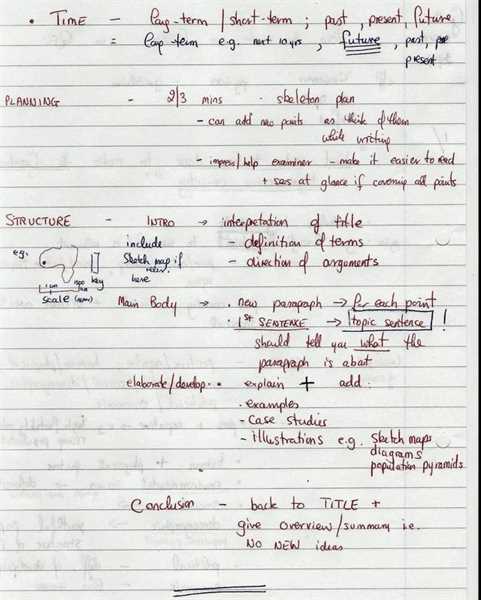 • TIME - long-term / short-term ; past, present, future
= long-term e.g. next 10 yrs , future , past, pre
present
PLANNING - 2/3 mins · skeleton plan
- can add new points as think of them
while writing
- impress/help examiner - make it easier to read
+ sees at glance if covering all points
STRUCTURE - INTRO → interpretation of title
e.g. include - definition of terms
Sketch map if - direction of arguments
here
1cm key
scale
Main Body → · new paragraph → for each point
· 1st SENTENCE → topic sentence !
should tell you what the
paragraph is about
elaborate/develop · explain + add :
· examples
- case studies
- illustrations e.g. sketch maps
diagrams
population pyramids
Conclusion - back to TITLE +
give overview/summary i.e.
NO NEW ideas